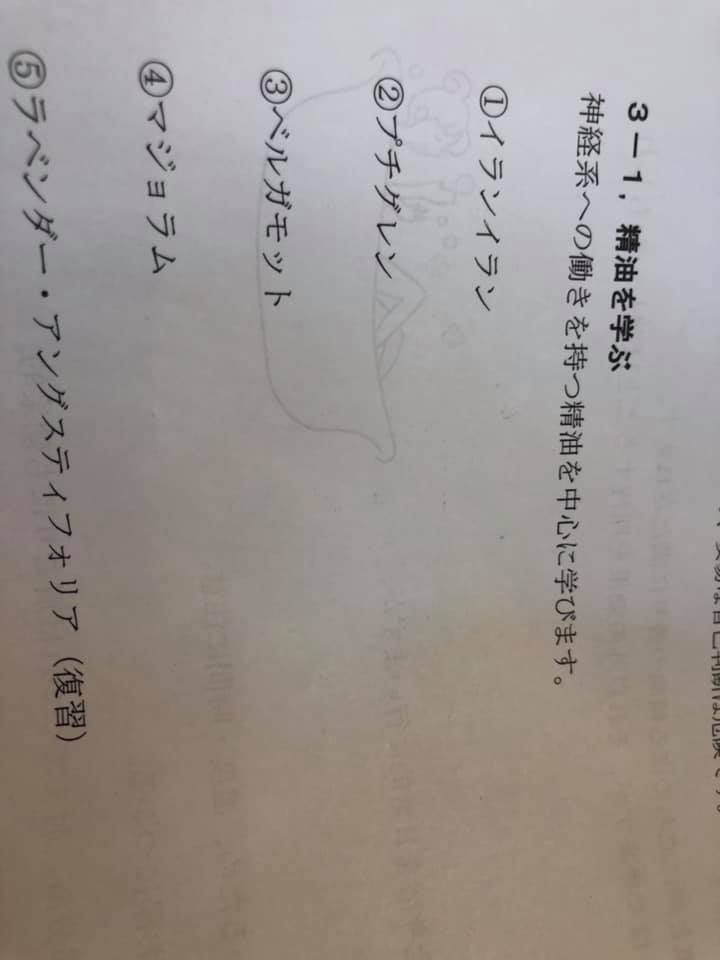 3－1，精油を学ぶ
神経系への働きを持つ精油を中心に学びます。
①イランイラン
②プチグレン
③ベルガモット
④マジョラム
⑤ラベンダー・アングスティフォリア（復習）